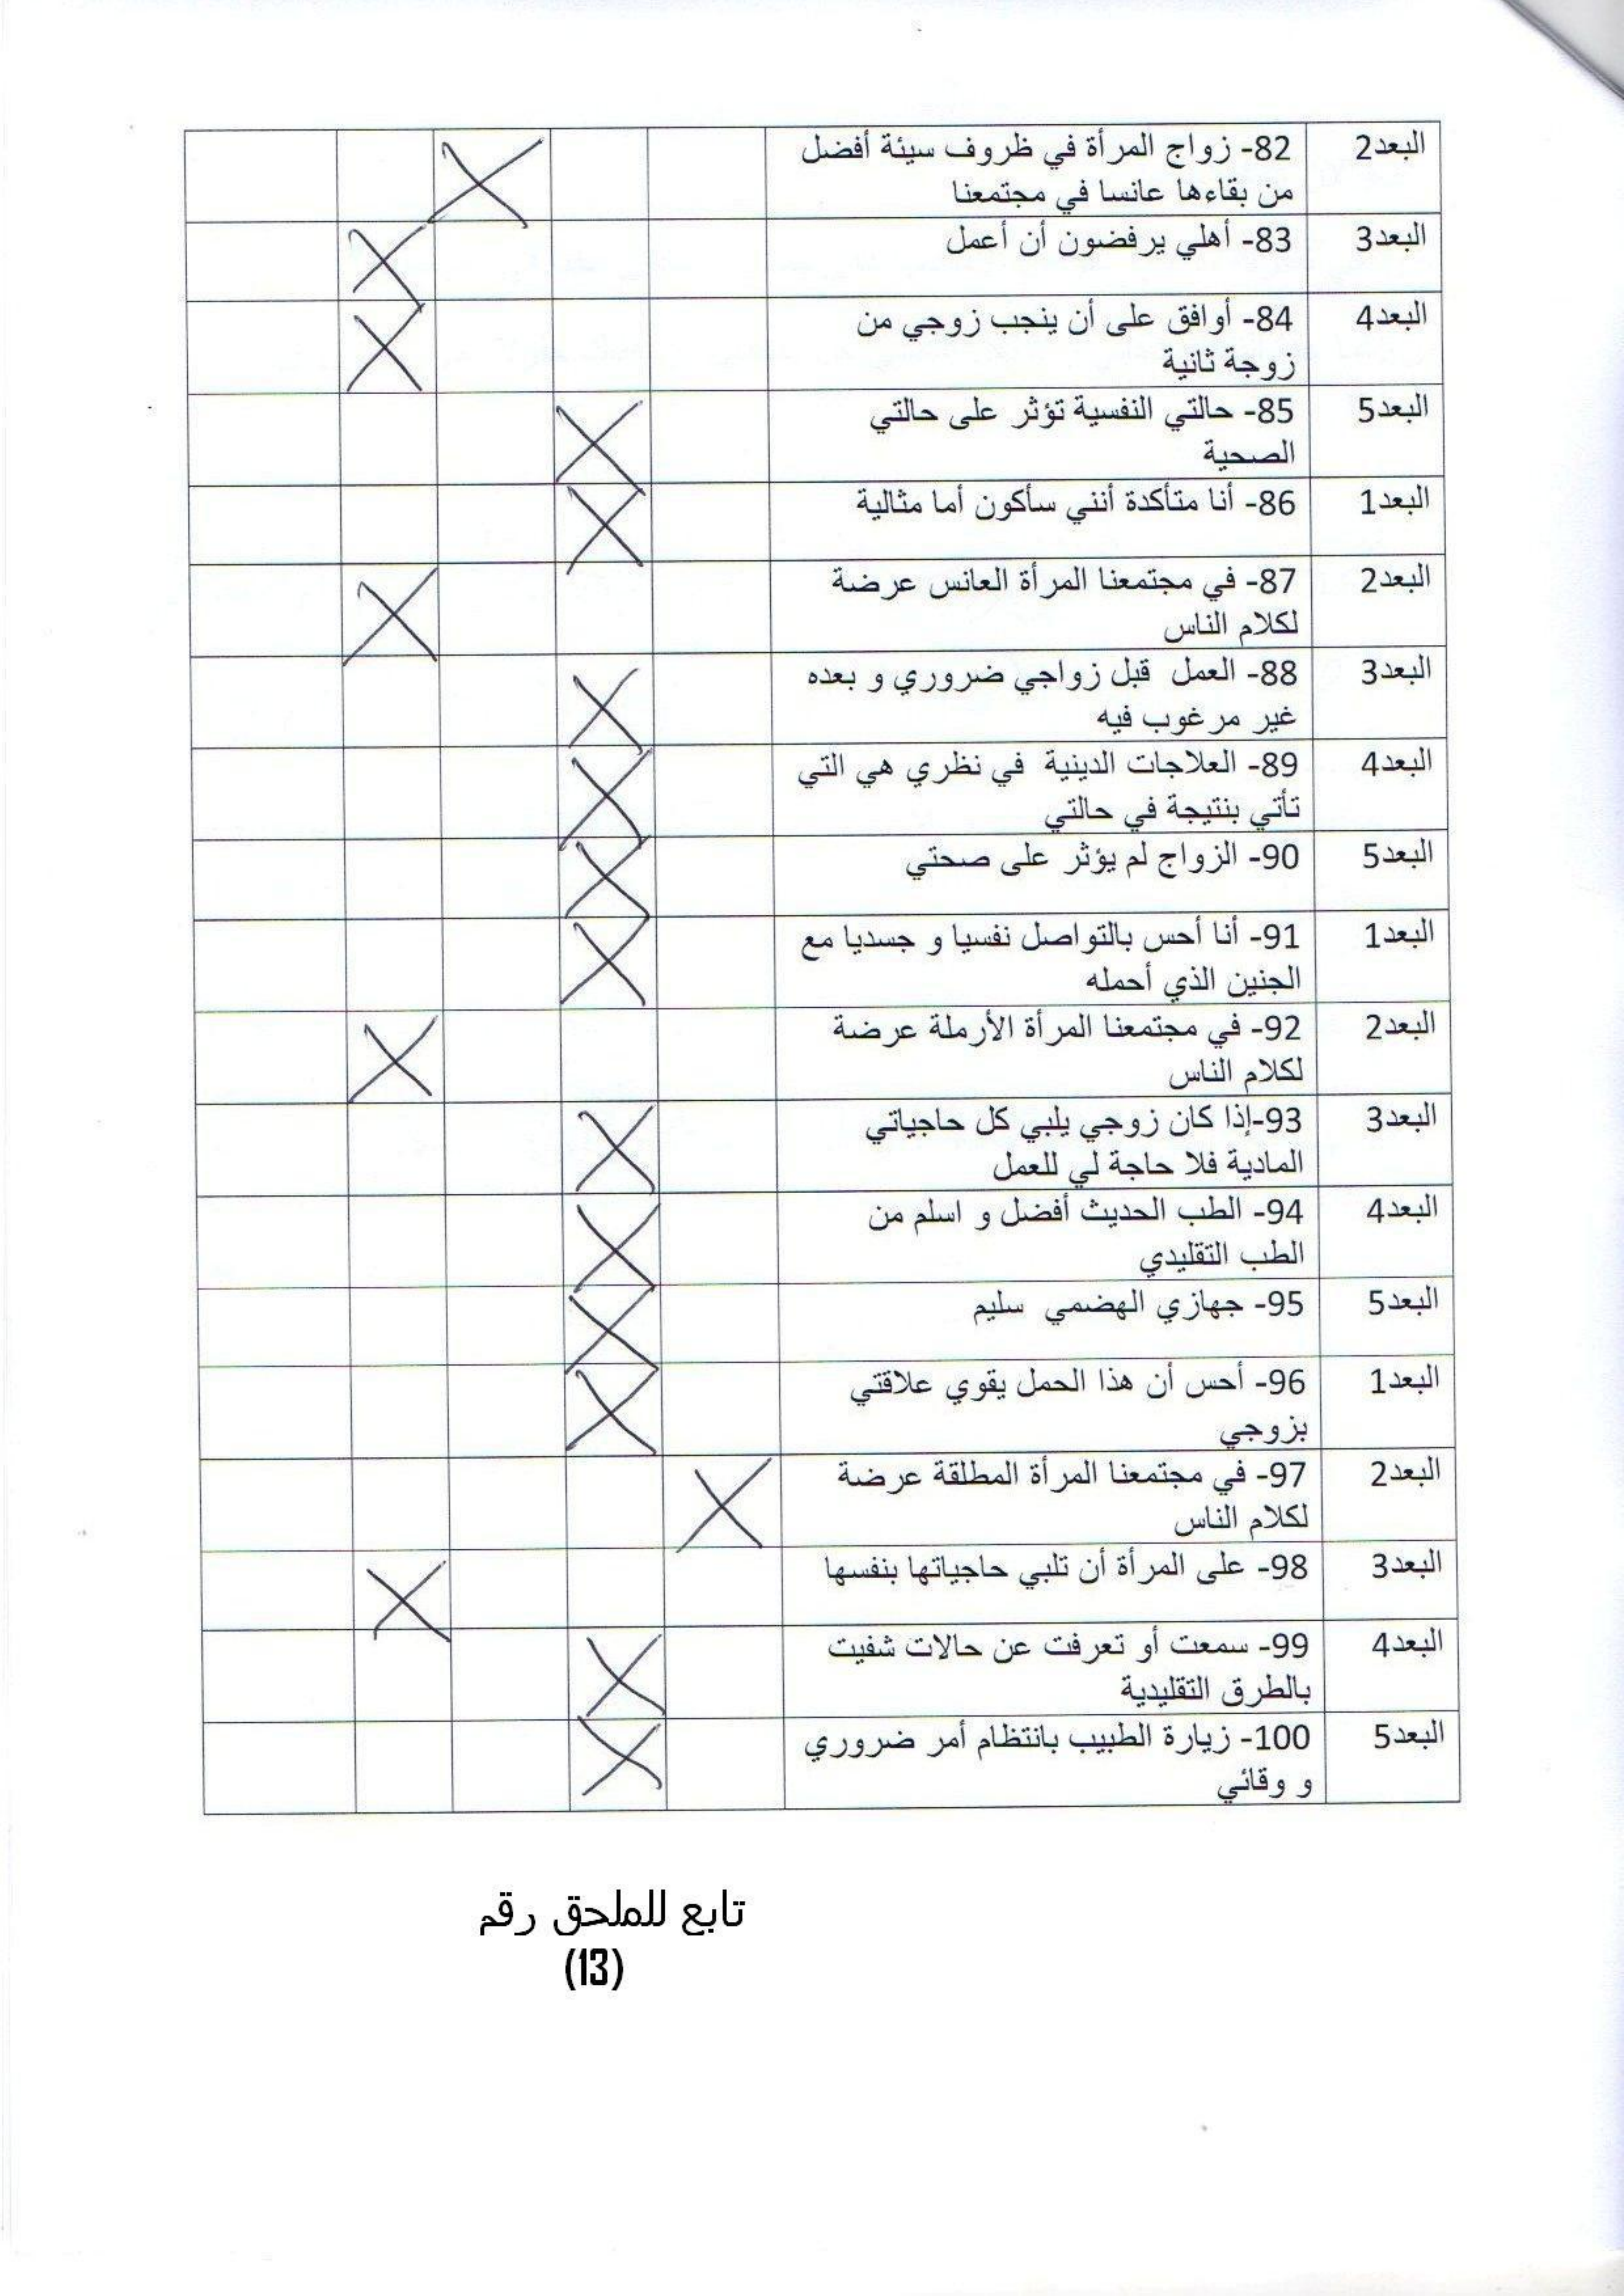 البعد2
82- زواج المرأة في ظروف سيئة أفضل
من بقاءها عانسا في مجتمعنا
البعد3
83- أهلي يرفضون أن أعمل
البعد4
84- أوافق على أن ينجب زوجي من
زوجة ثانية
البعد5
85- حالتي النفسية تؤثر على حالتي
الصحية
البعد1
86- أنا متأكدة أنني سأكون أما مثالية
البعد2
87- في مجتمعنا المرأة العانس عرضة
لكلام الناس
البعد3
88- العمل قبل زواجي ضروري و بعده
غير مرغوب فيه
البعد4
89- العلاجات الدينية في نظري هي التي
تأتي بنتيجة في حالتي
البعد5
90- الزواج لم يؤثر على صحتي
البعد1
91- أنا أحس بالتواصل نفسيا و جسديا مع
الجنين الذي أحمله
البعد2
92- في مجتمعنا المرأة الأرملة عرضة
لكلام الناس
البعد3
93-إذا كان زوجي يلبي كل حاجياتي
المادية فلا حاجة لي للعمل
البعد4
94- الطب الحديث أفضل و اسلم من
الطب التقليدي
البعد5
95- جهازي الهضمي سليم
البعد1
96- أحس أن هذا الحمل يقوي علاقتي
بزوجي
البعد2
97- في مجتمعنا المرأة المطلقة عرضة
لكلام الناس
البعد3
98- على المرأة أن تلبي حاجياتها بنفسها
البعد4
99- سمعت أو تعرفت عن حالات شفيت
بالطرق التقليدية
البعد5
100- زيارة الطبيب بانتظام أمر ضروري
و وقائي
تابع للملحق رقم
(13)